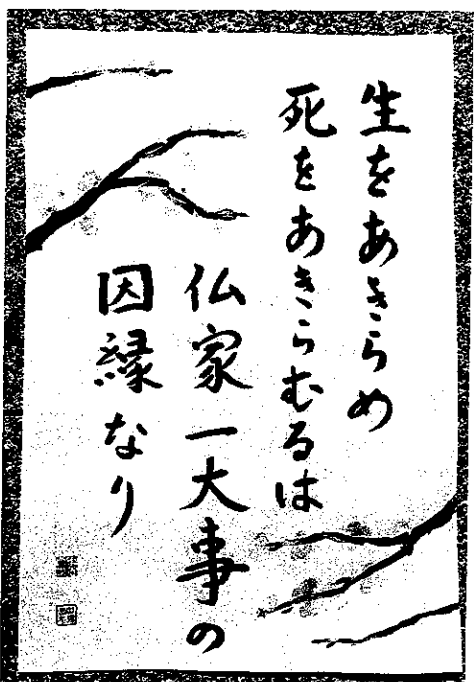 生をあきらめ
死をあきらむるは
仏家一大事の
因縁なり